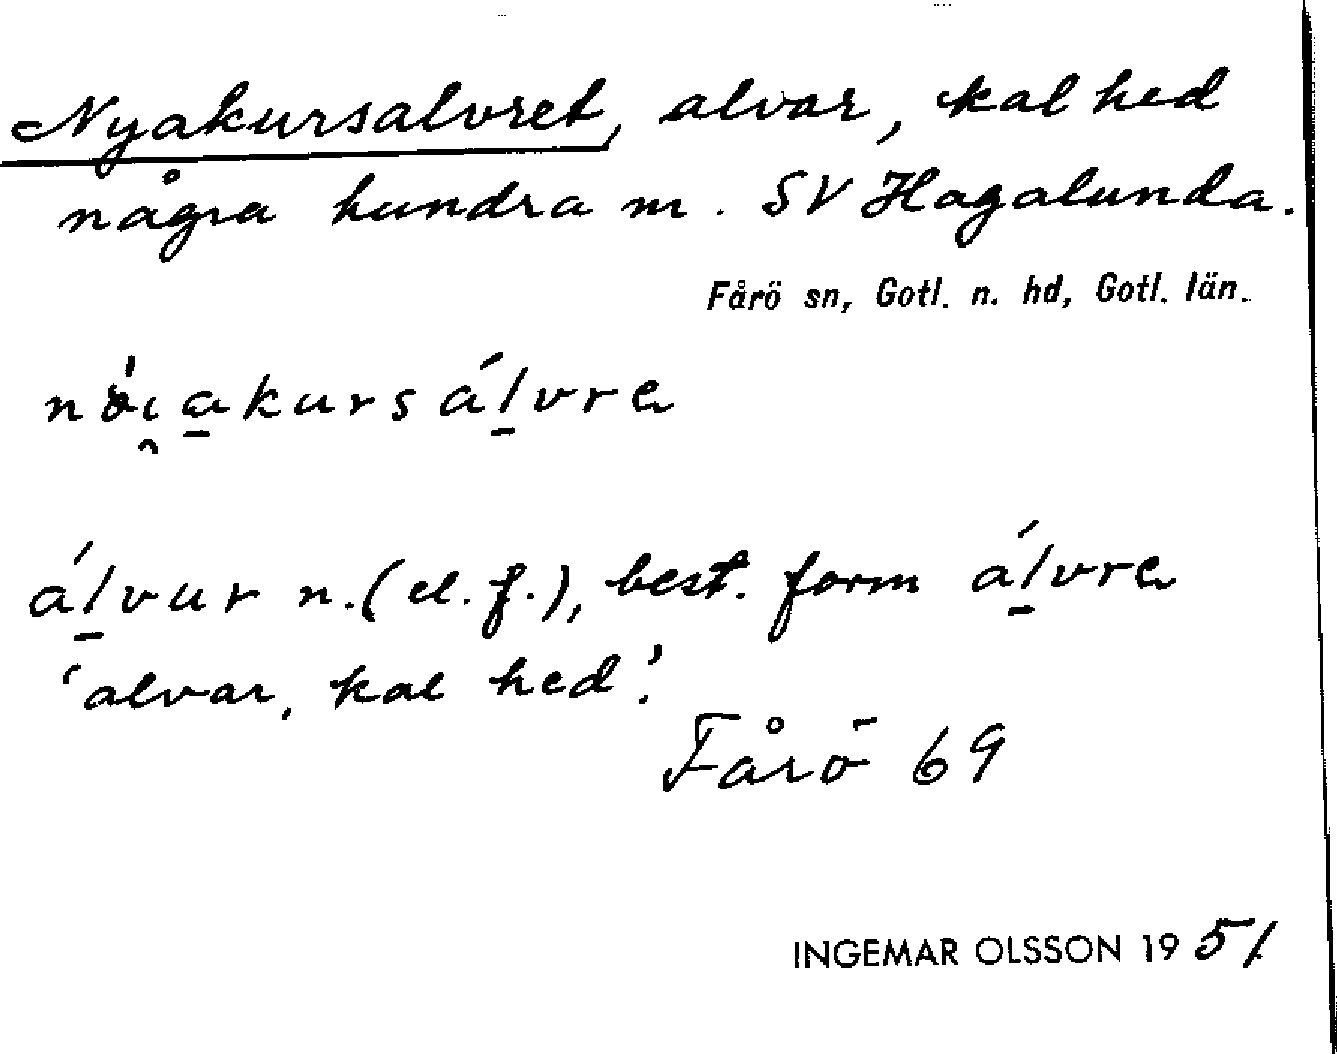 Nyakursalvret, alvar, kal hed
några hundra m. SV Hagalunda.
Fårö sn, Gotl. n. hd, Gotl. län.
nɵ́ı̯a̱kursáḻvrɐ
áḻvur n. (el. f.), best. form áḻvrɐ
‘alvar, kal hed’.
Fårö 69
INGEMAR OLSSON 1951